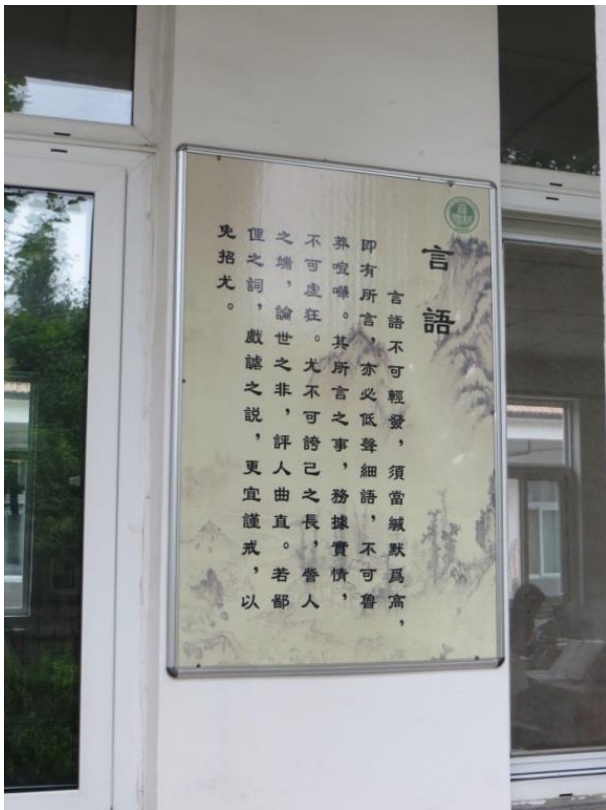 言語
言語不可輕發，須當緘默爲高，
即有所言，亦必低聲細語，不可魯
莽喧嘩。其所言之事，務據實情，
不可虛狂。尤不可誇己之長，訾人
之端，論世之非，評人曲直。若鄙
俚之詞，戲謔之説，更宜謹戒，以
免招尤。